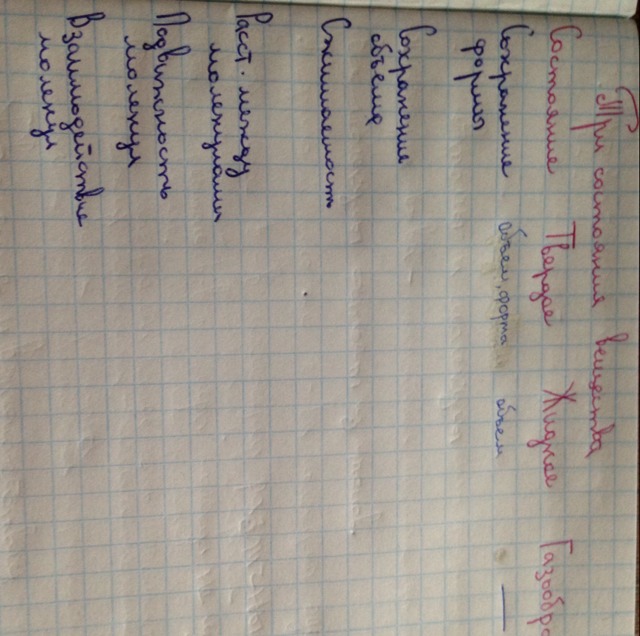 Три состояния вещества
Состояние Твердое Жидкое Газообра
Сохранение объем, форма объем —
формы
Сохранение
объема
Сжимаемость
Расст. между
молекулами
Подвижность
молекул
Взаимодействие
молекул